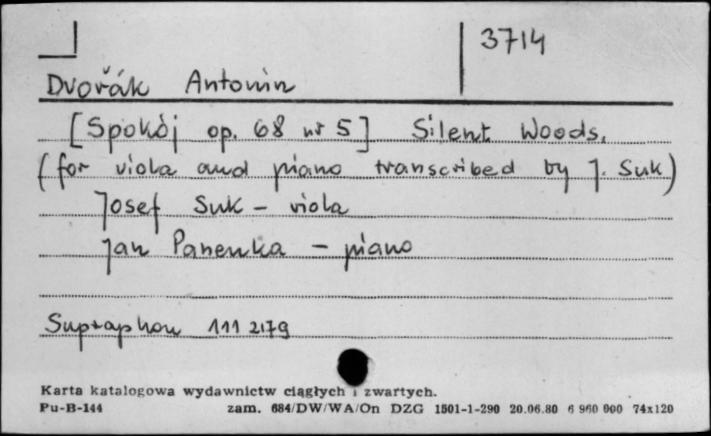 3714
Dvořák Antonin
[Spokój op. 68 nr 5] Silent Woods.
(for viola and piano transcribed by J. Suk)
Josef Suk – viola
Jan Panenka – piano
Supraphon 111 2179
Karta katalogowa wydawnictw ciągłych i zwartych.
Pu-B-144 zam. 684/DW/WA/On DZG 1501-1-290 20.06.80 6 960 000 74x120